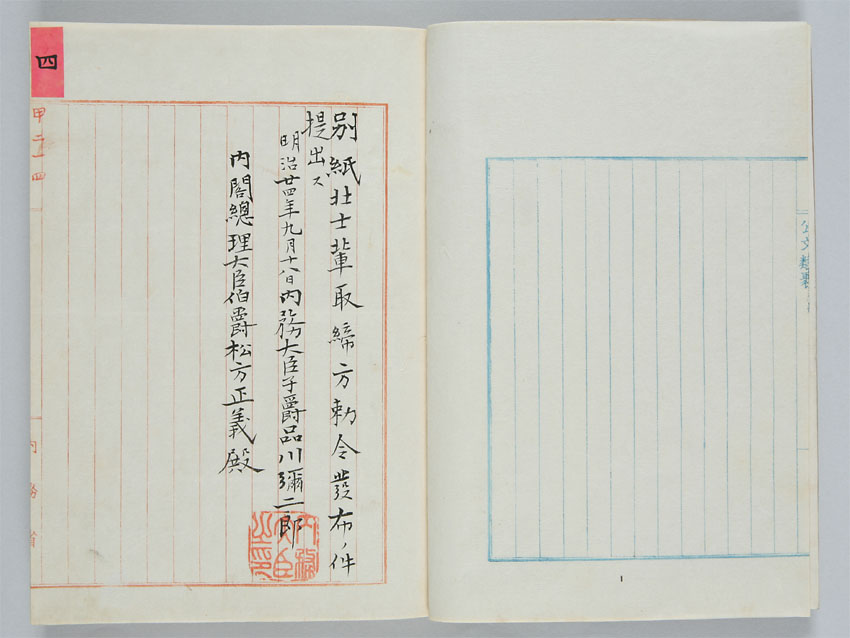 公文類聚
1
四
甲二一四
別紙壮士輩取締方勅令發布ノ件
提出ス
明治廿四年九月十八日
内務大臣子爵品川彌二郎
内務大臣之印
内閣總理大臣伯爵松方正義殿
内務省